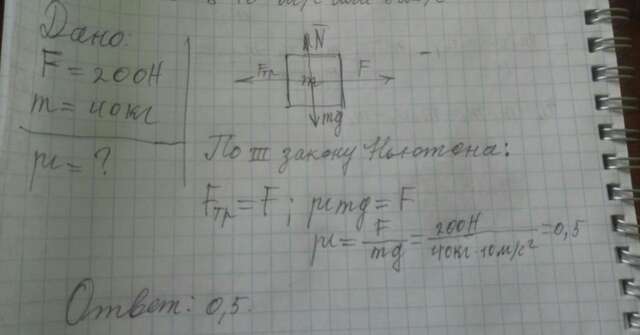 Дано:
F = 200Н
m = 40кг
μ = ?
N
Fтр m F
mg
По III закону Ньютона:
Fтр = F; μmg = F
μ = F/mg = 200Н/40кг·10м/с² = 0,5
Ответ: 0,5.